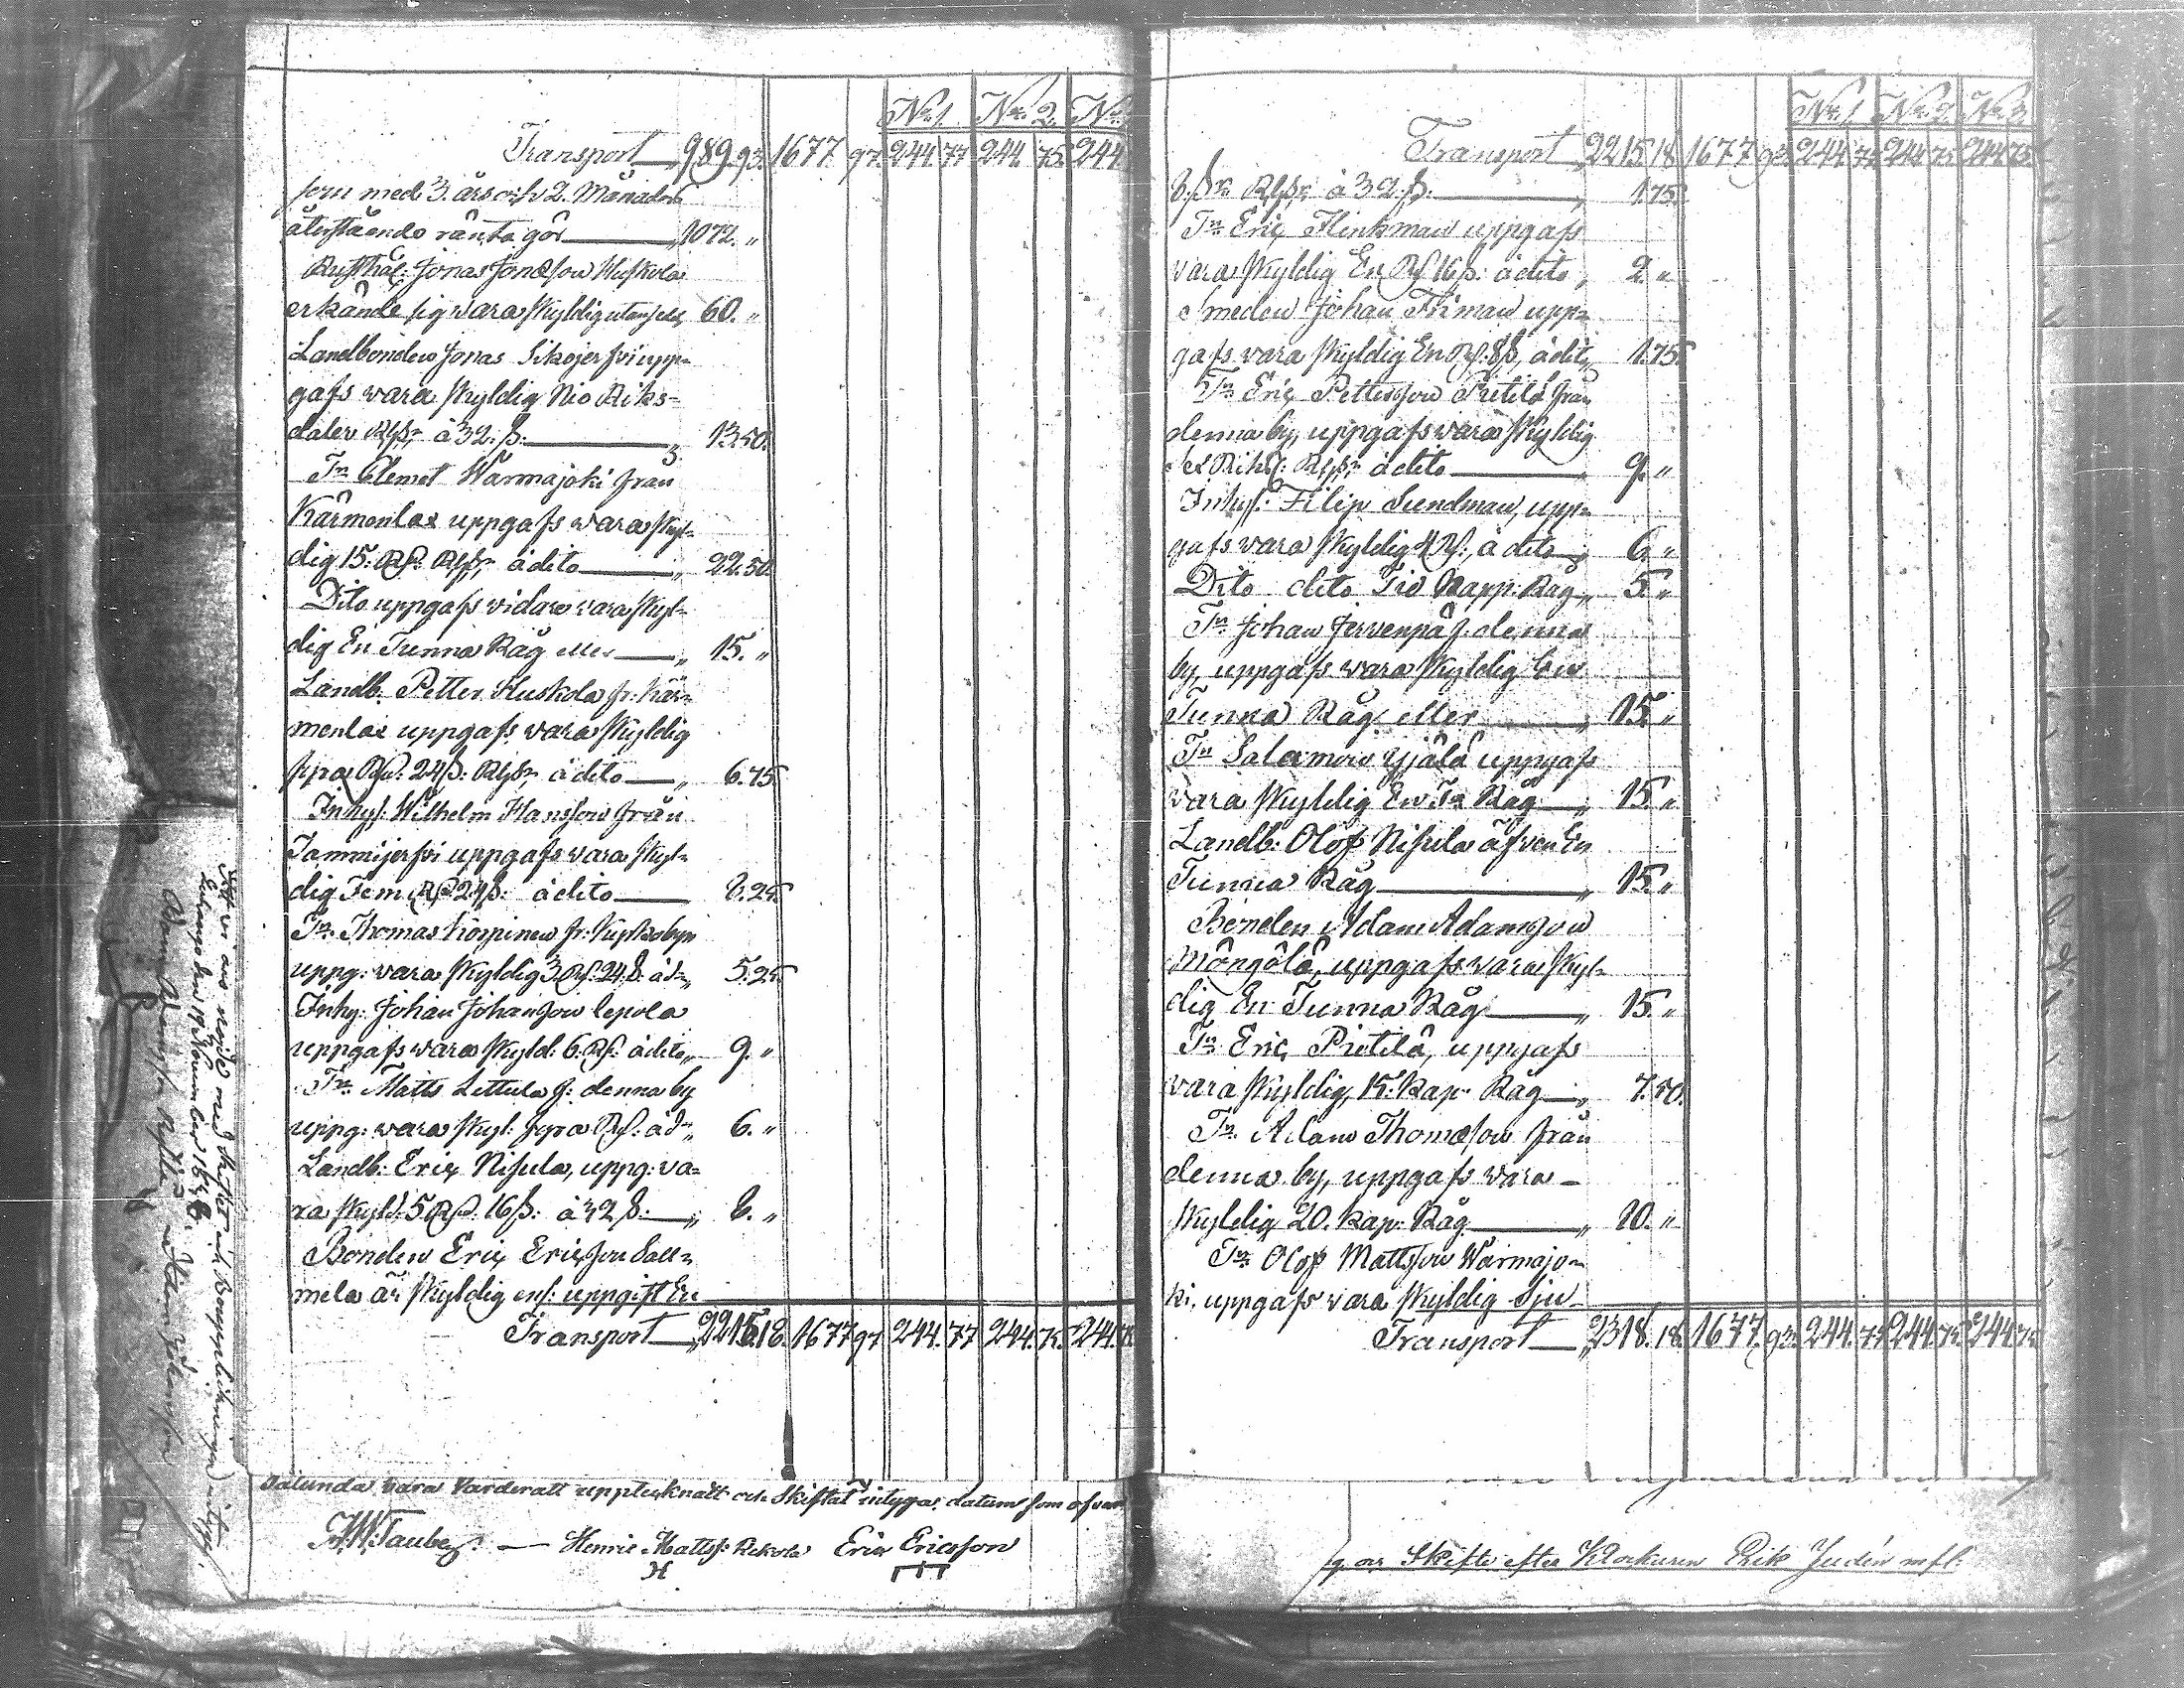 No 1. No 2. No
Transport 989.93. 1677 97. 244.77 244 75. 244
som med 3. års och 2. Månaders
återstående ränta gör 1072. "
Rusthål: Jonas Jonasson Huskola
erkände sig vara skyldig utan sed. 60. "
Landbonden Jonas Sikojerfvi upp=
gafs vara skyldig Nio Riks=
daler Rgsr. à 32. ß. 13.50.
Tn Clemet Warmajoki från
Kärmenlax uppgafs vara skyl=
dig 15: Rd. Rgsr. à dito 22.50.
Dito uppgafs vidare vara skyl=
dig En Tunna Råg eller 15. "
Landb: Petter Huskola fr: Kär=
menlax uppgafs vara skyldig
fyra Rd: 24 ß: Rgsr. à dito 6.75.
Inhys: Wilhelm Hansson från
Tammijerfvi uppgafs vara skyl=
dig Fem Rd 24 ß: à dito 8.25.
Tn. Thomas Korpinen fr: Kyrkobyn
uppg: vara skyldig 3. Rd: 24. ß. à d:o 5.25
Inhy: Johan Johansson Lepola
uppgafs vara skyld: 6. Rd: à dito 9. "
Tn Matts Lettula f: denna by
uppg: vara skyl: fyra Rd: à d:o 6. "
Landb: Eric Nisula, uppg: va=
ra skyld: 5 Rd: 16 ß: à 32 ß. 8. "
Bonden Eric Ericsson Sall=
mela är skyldig enl: uppgift En
Transport 2215.18. 1677 97 244.77 244.75. 244.
Sålunda vara Värderatt uppteknatt och Skiftat intygar datum som ofvan
H.W. Taube. — Henric Mattss: Rekola Eric Ericsson
H
No 1 No 2. No 3.
Transport 2215.18 1677 93. 244.77 244 75 244 75.
8. ß Rgsr. à 32. ß. 1.75.
Tn Eric Flinkman uppgafs
vara skyldig En Rd 16 ß: à dito 2. "
Smeden Johan Friman upp=
gafs vara skyldig En Rd: 8 ß, à dito 1.75.
Tn Eric Pettersson Pietilä från
denna by, uppgafs vara skyldig
sex Riksd: Rgsr. à dito 9. "
Inhys: Filip Sundman, upp=
gafs vara skyldig 4 Rd:, à dito 6. "
Dito dito Tio Kapp. Råg 5. "
Tn Johan Jervenpä f. denna
by, uppgafs vara skyldig En
Tunna Råg eller 15. "
Tn Salomon Yjälä uppgafs
vara skyldig En Tn Råg 15. "
Landb: Olof Nisula äfven En
Tunna Råg 15. "
Bonden Adam Adamsson
Möngölä, uppgafs vara skyl=
dig En Tunna Råg 15. "
Tn Eric Pietilä, uppgafs
vara skyldig, 15. kap. Råg 7.50.
Tn. Adam Thomasson från
denna by, uppgafs vara
skyldig 20. kap. Råg 10. "
Tn Olof Mattsson Warmajo=
ki, uppgafs vara skyldig Sju
Transport 2318.18. 1677. 93. 244.77 244.75. 244 75.
Skifte efter Klockaren Erik Judén mfl.